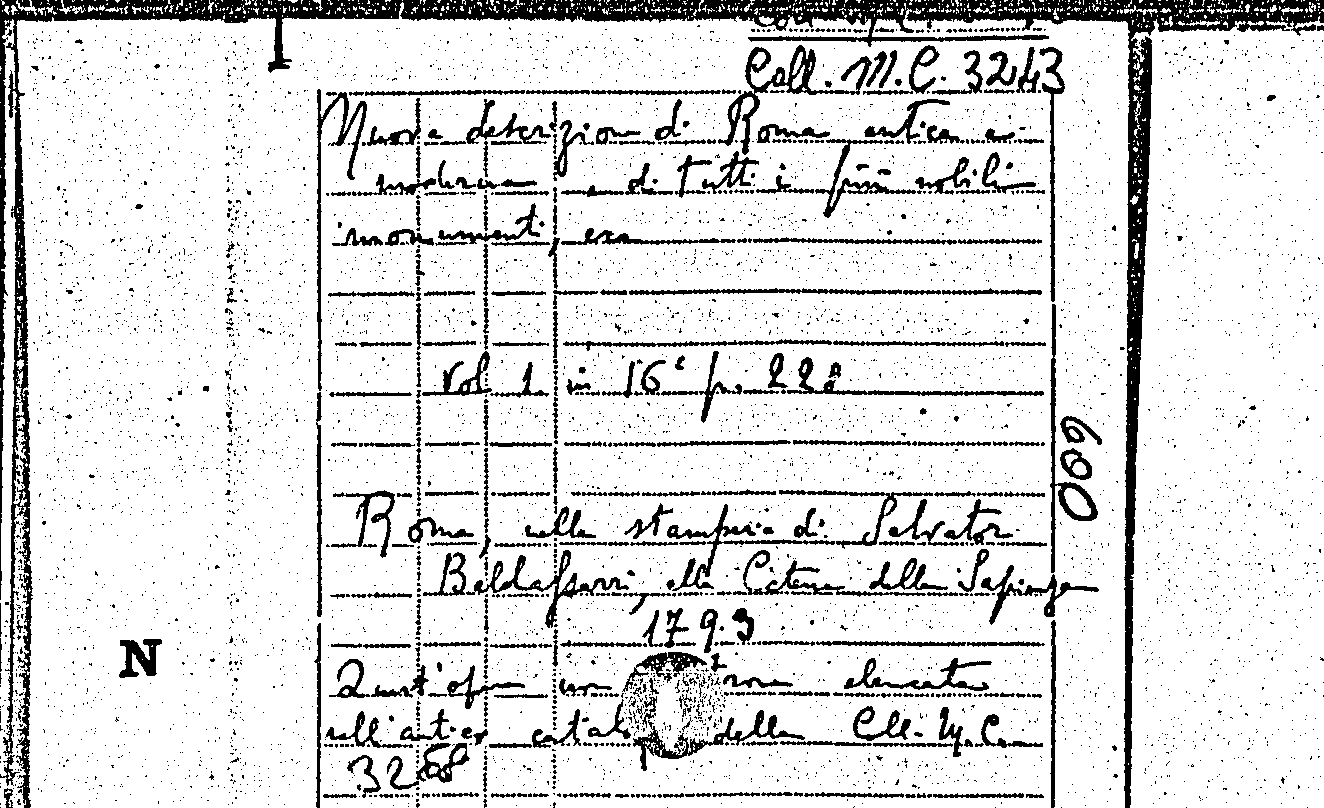 Coll. M.C. 3243
Nuova descrizione di Roma antica e
moderna, di tutti i più nobili
monumenti, ecc
Vol 1. in 16° p. 228
600
Roma, nella stamperia di Salvator
Baldassarri, alla Catena della Sapienza
1793
N
Quest'opera non trova elencata
nell'antico catalogo della Coll. M.C.